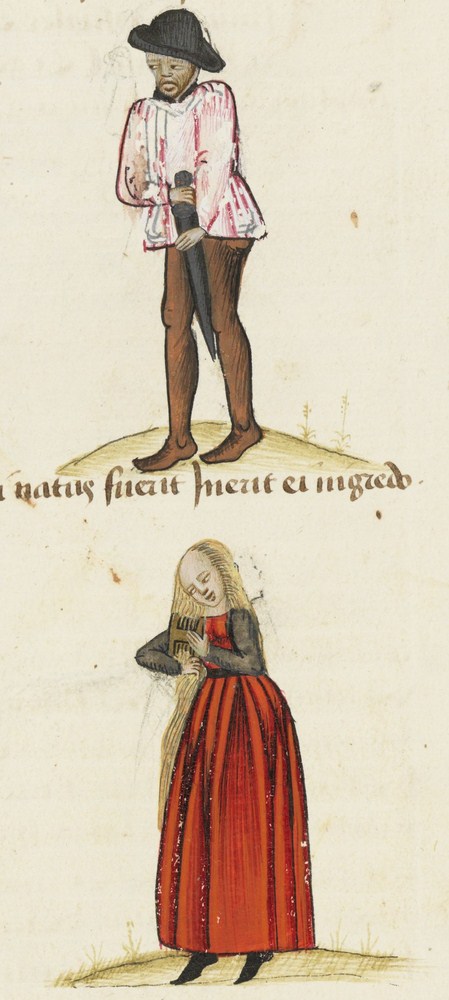 natus fuerit Inerit ei nigredo.